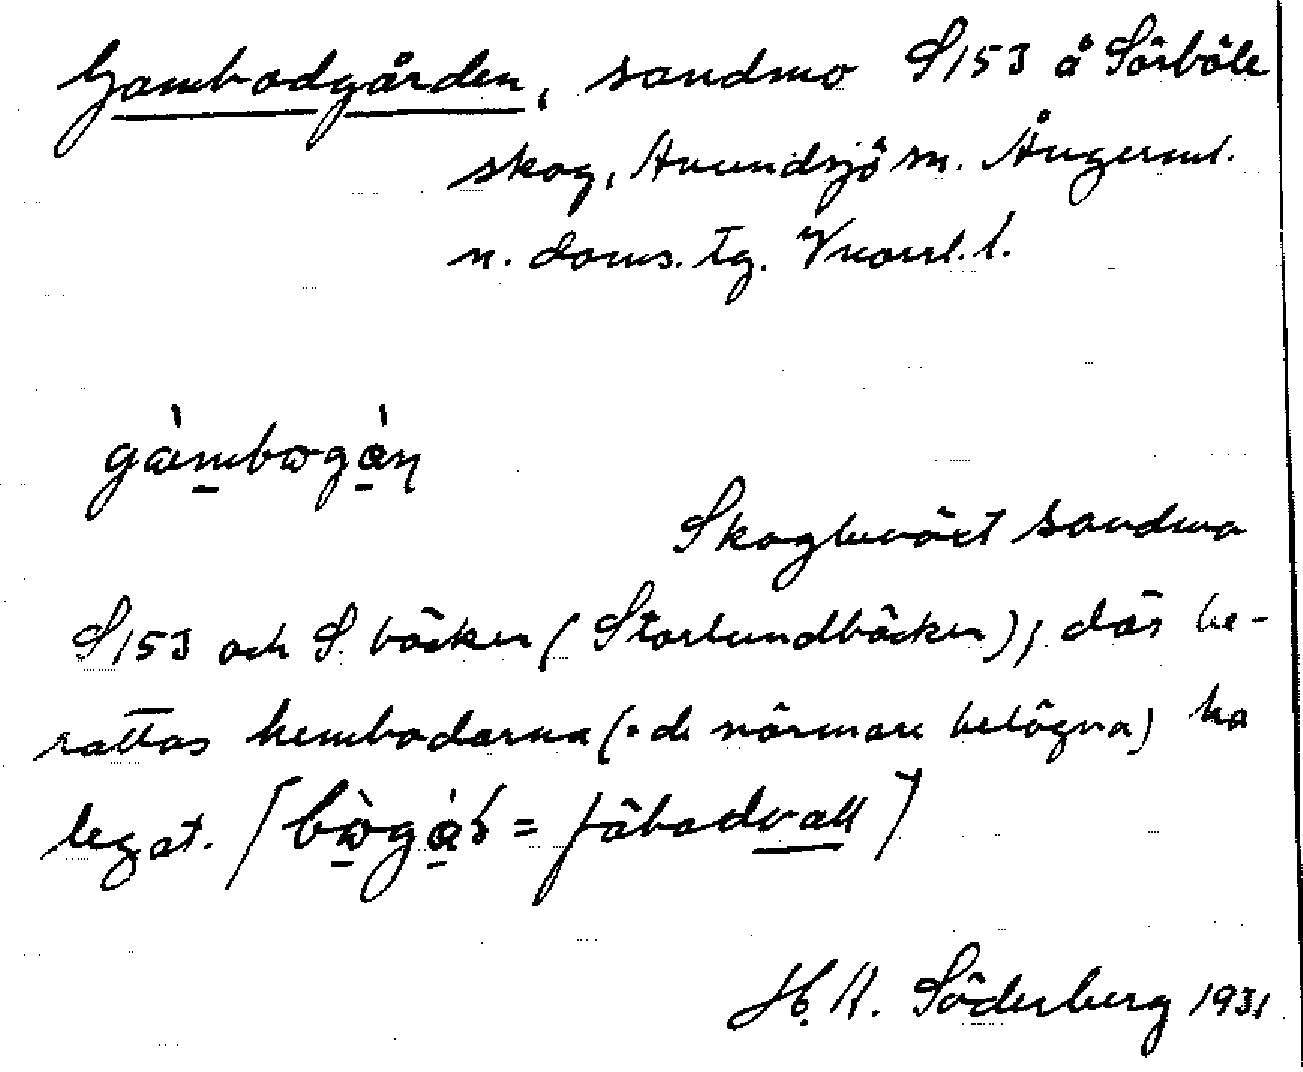 Gambodgården, sandmo S 153 å Sörböle
skog, Avundsjö sn. Ångerml.
n. doms. tg. Vnorrl. l.
gàmbogån
Skogbeväxt sandmo
S 153 och S. bäcken (Storlundbäcken), där be-
rättas hembodarna (: de närmare belägna) ha
legat. [bògål = fäbodvall]
H. A. Söderberg 1931